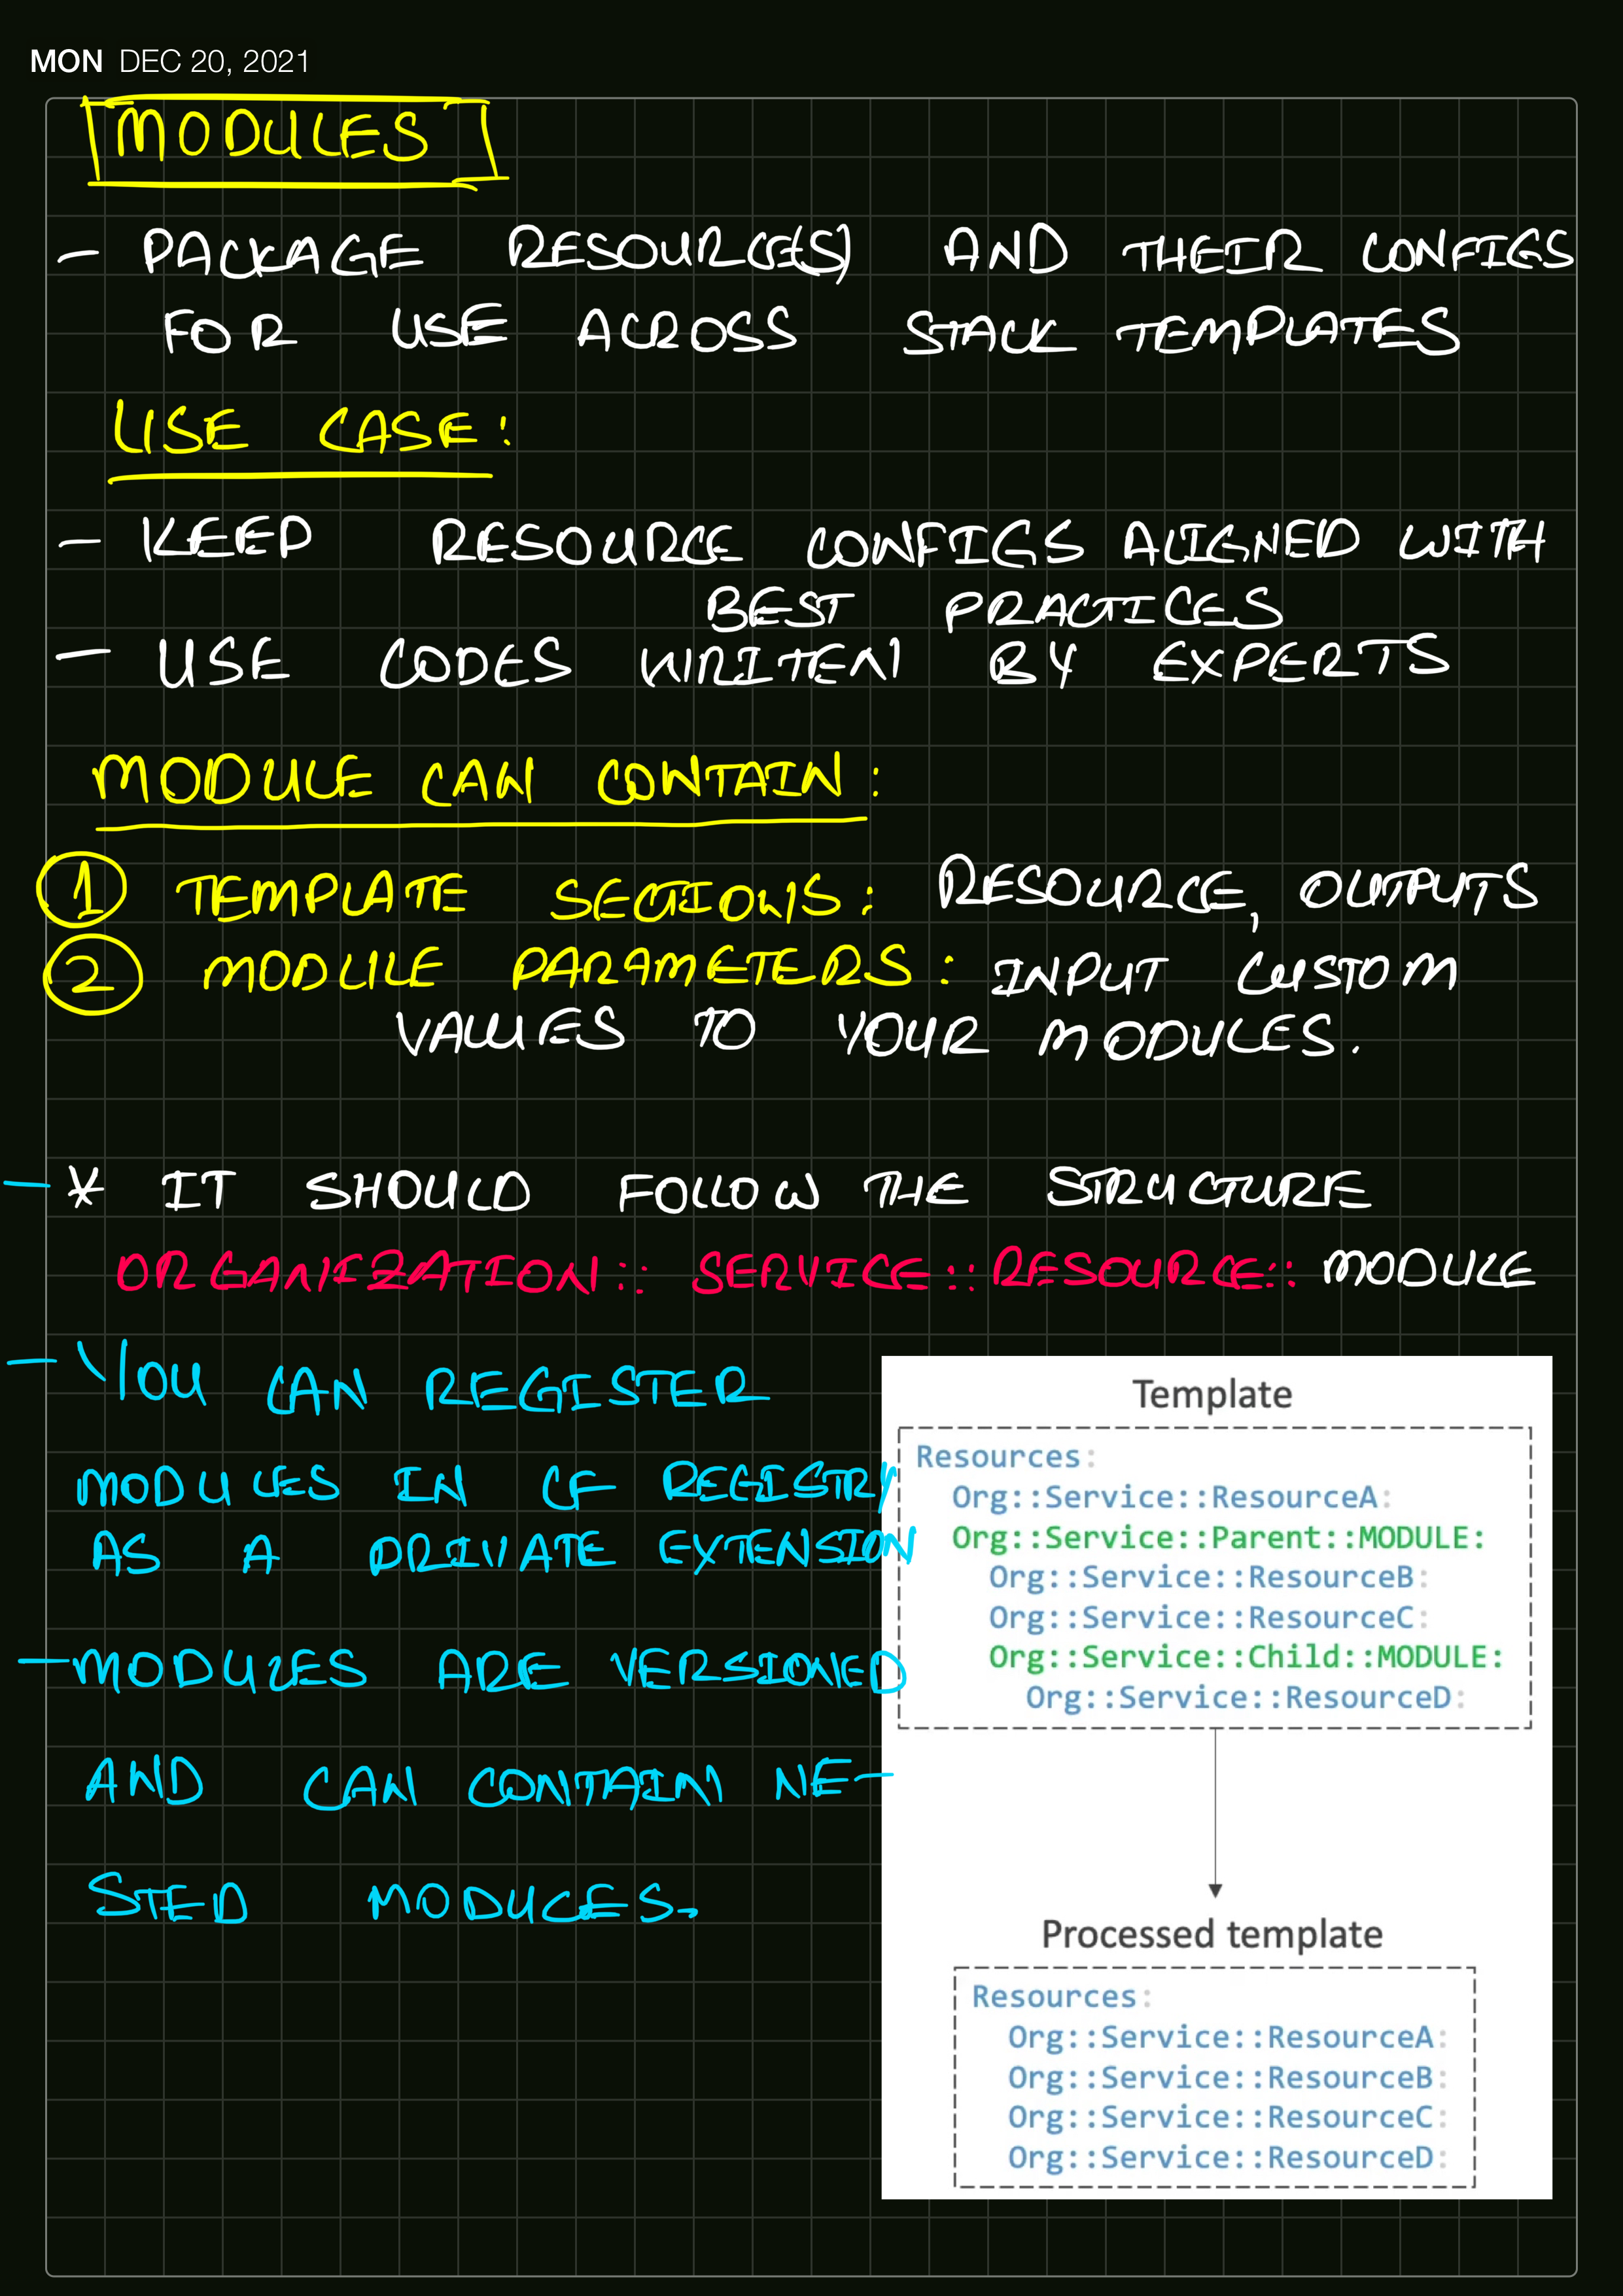 MON DEC 20, 2021
MODULES
- PACKAGE RESOURCE(S) AND THEIR CONFIGS
FOR USE ACROSS STACK TEMPLATES
USE CASE:
- KEEP RESOURCE CONFIGS ALIGNED WITH
BEST PRACTICES
- USE CODES WRITEN BY EXPERTS
MODULE CAN CONTAIN:
1 TEMPLATE SECTIONS: RESOURCE, OUTPUTS
2 MODULE PARAMETERS: INPUT CUSTOM
VALUES TO YOUR MODULES.
- * IT SHOULD FOLLOW THE STRUCTURE
ORGANIZATION:: SERVICE:: RESOURCE:: MODULE
- YOU CAN REGISTER
MODULES IN CF REGISTRY
AS A PRIVATE EXTENSION
- MODULES ARE VERSIONED
AND CAN CONTAIN NE-
STED MODULES.
Template
Resources:
Org::Service::ResourceA:
Org::Service::Parent::MODULE:
Org::Service::ResourceB:
Org::Service::ResourceC:
Org::Service::Child::MODULE:
Org::Service::ResourceD:
Processed template
Resources:
Org::Service::ResourceA:
Org::Service::ResourceB:
Org::Service::ResourceC:
Org::Service::ResourceD: